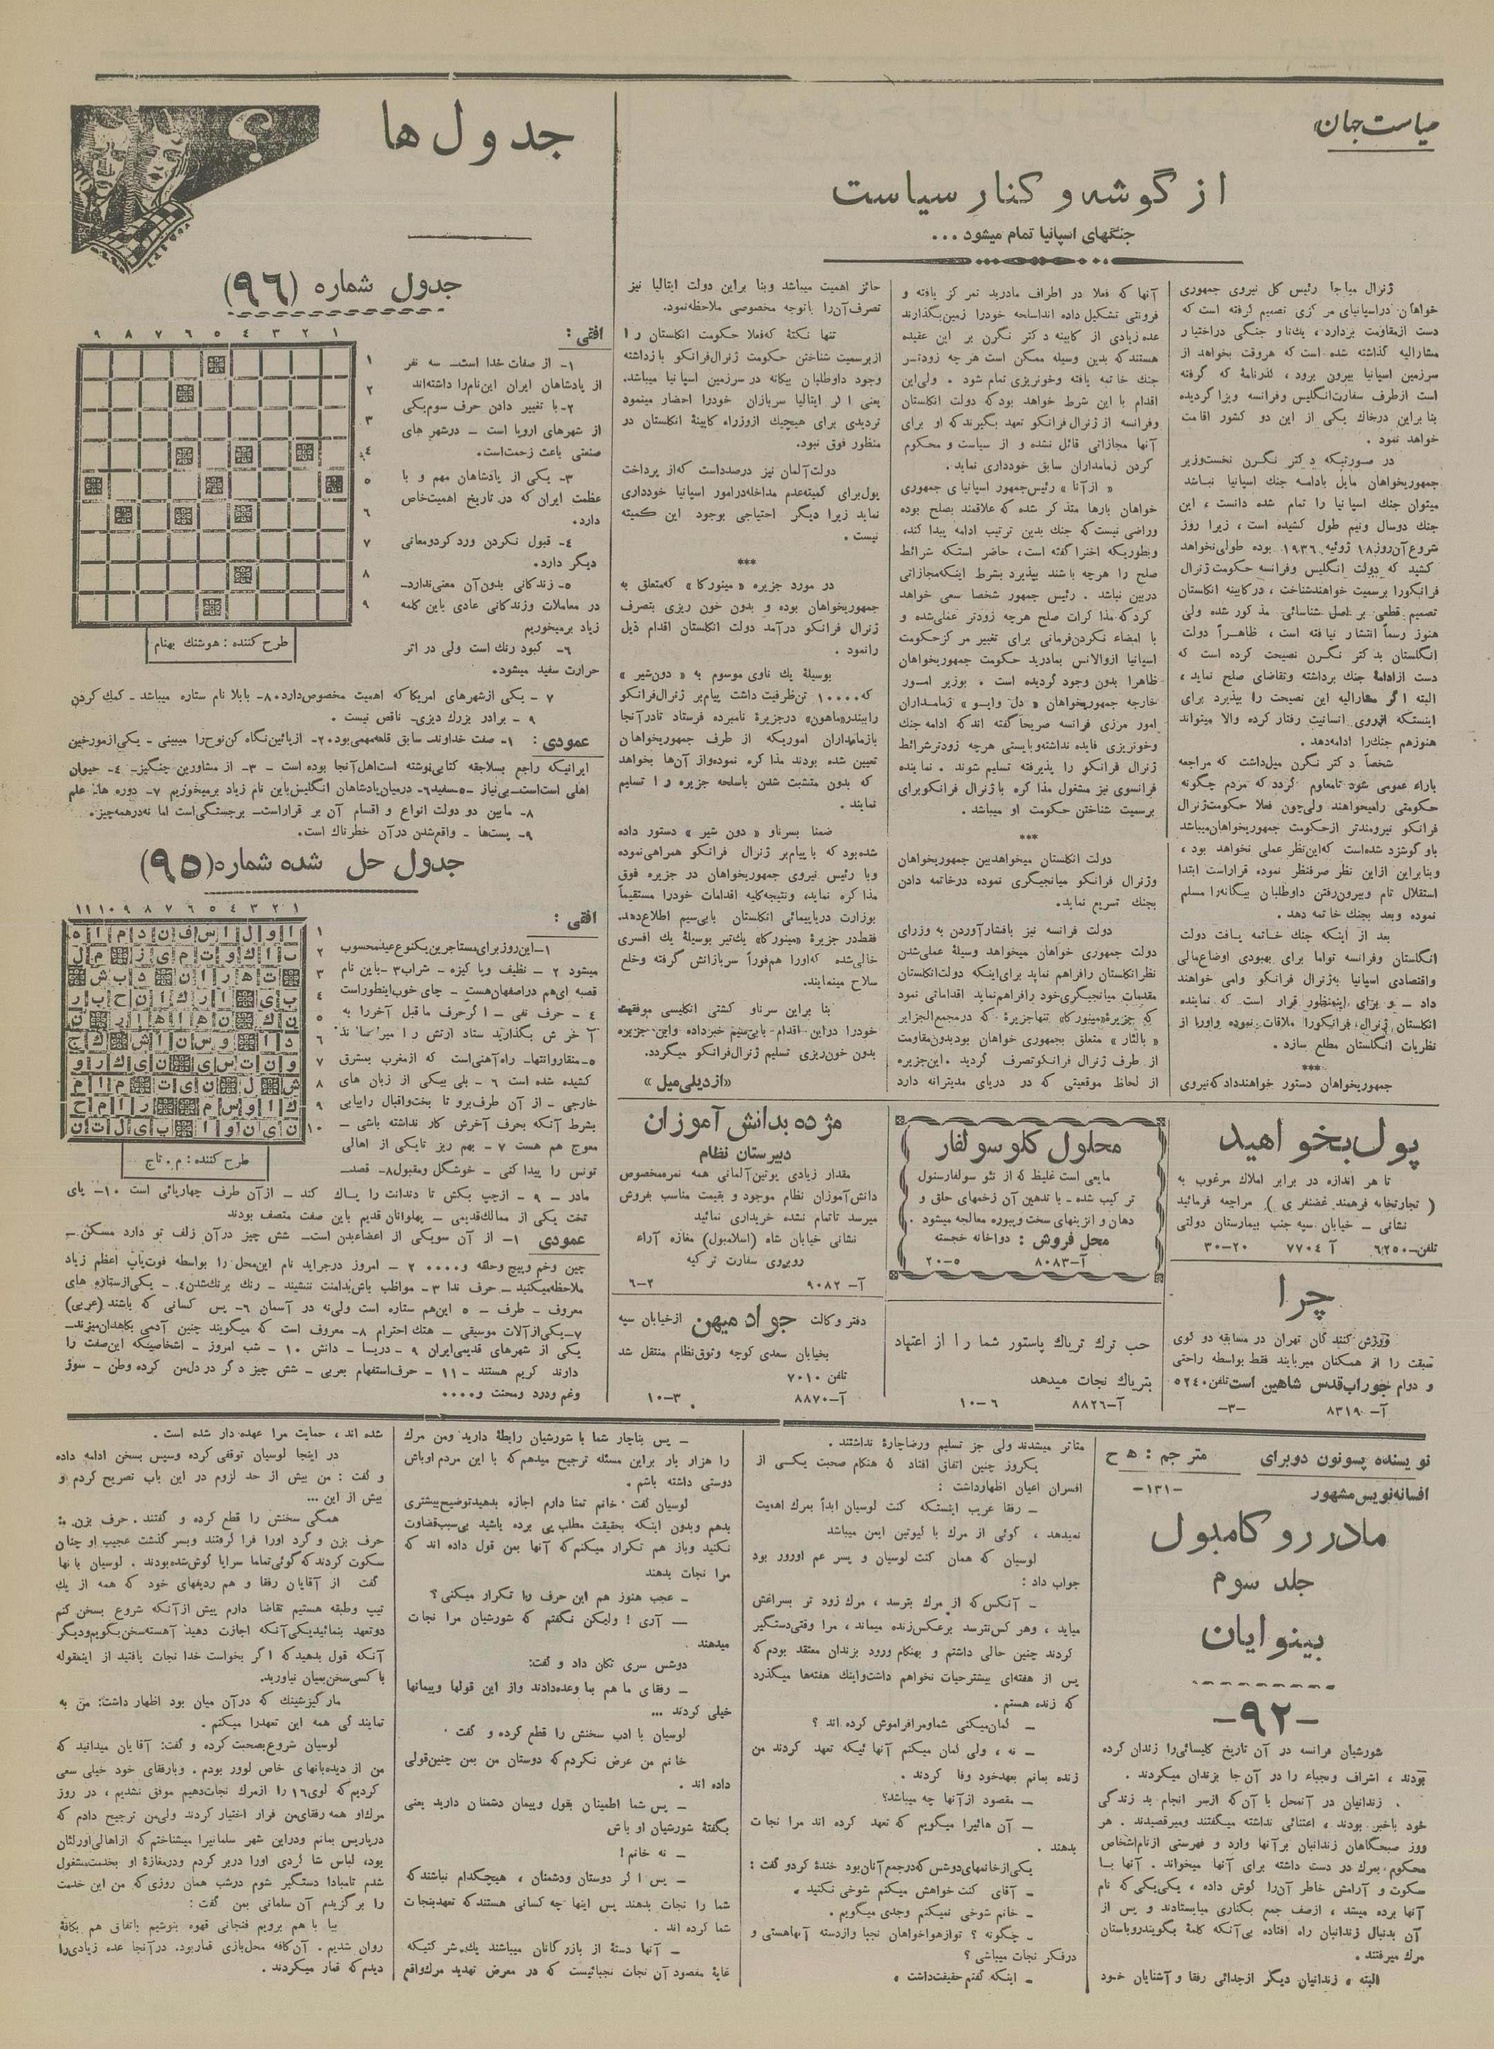 سیاست جهان
از گوشه و کنار سیاست
جنگهای اسپانیا تمام میشود ...
ژنرال میاجا رئیس کل نیروی جمهوری
خواهان در اسپانیای مرکزی تصمیم گرفته است که
دست از مقاومت بردارد، یک ناو جنگی در اختیار
مشارالیه گذاشته شده است که هر وقت بخواهد از
سرزمین اسپانیا بیرون برود، گذرنامهٔ که گرفته
است از طرف سفارت انگلیس و فرانسه ویزا گردیده
بنابراین در خاک یکی از این دو کشور اقامت
خواهد نمود .
در صورتیکه دکتر نگرن نخست وزیر
جمهوریخواهان مایل بادامه جنگ اسپانیا نباشد
میتوان جنگ اسپانیا را تمام شده دانست ، این
جنگ دو سال و نیم طول کشیده است ، زیرا روز
شروع آن روز ۱۸ ژوئیه ۱۹۳۶ بوده طولی نخواهد
کشید که دولت انگلیس و فرانسه حکومت ژنرال
فرانکو را برسمیت خواهند شناخت ، در کابینه انگلستان
تصمیم قطعی بر اصل شناسائی مذکور شده ولی
هنوز رسماً انتشار نیافته است ، ظاهراً دولت
انگلستان بدکتر نگرن نصیحت کرده است که
دست از ادامهٔ جنگ برداشته و تقاضای صلح نماید ،
البته اگر مشارالیه این نصیحت را بپذیرد برای
اینستکه از روی انسانیت رفتار کرده والا میتواند
هنوز هم جنگ را ادامه دهد .
شخصاً دکتر نگرن میل داشت که مراجعه
بآراء عمومی شود تا معلوم گردد که مردم چگونه
حکومتی را میخواهند ولی چون فعلا حکومت ژنرال
فرانکو نیرومندتر از حکومت جمهوریخواهان میباشد
باو گوشزد شده است که این نظر عملی نخواهد بود ،
وبنابراین از این نظر صرفنظر نموده قرار است ابتدا
استقلال تام و بیرون رفتن داوطلبان بیگانه را مسلم
نموده و بعد بجنگ خاتمه دهد .
بعد از اینکه جنگ خاتمه یافت دولت
انگلستان و فرانسه تواما برای بهبودی اوضاع مالی
واقتصادی اسپانیا به ژنرال فرانکو وامی خواهند
داد — و برای اینمنظور قرار است که نماینده
انگلستان ژنرال فرانکو را ملاقات نموده و او را از
نظریات انگلستان مطلع سازد .
***
جمهوریخواهان دستور خواهند داد که نیروی
آنها که فعلا در اطراف مادرید تمرکز یافته و
فرونتی تشکیل داده اند اسلحه خود را زمین بگذارند
عده زیادی از کابینه دکتر نگرن بر این عقیده
هستند که بدین وسیله ممکن است هر چه زودتر
جنگ خاتمه یافته و خونریزی تمام شود . ولی این
اقدام با این شرط خواهد بود که دولت انگلستان
و فرانسه از ژنرال فرانکو تعهد بگیرند که او برای
آنها مجازاتی قائل نشده و از سیاست و محکوم
کردن زمامداران سابق خودداری نماید .
« ازآنا » رئیس جمهور اسپانیای جمهوری
خواهان بارها متذکر شده که علاقمند بصلح بوده
وراضی نیست که جنگ بدین ترتیب ادامه پیدا کند،
وبطوریکه اخیرا گفته است ، حاضر استکه شرائط
صلح را هر چه باشند بپذیرد بشرط اینکه مجازاتی
در بین نباشد . رئیس جمهور شخصا سعی خواهد
کرد که مذاکرات صلح هر چه زودتر عملی شده و
با امضاء نکردن فرمانی برای تغییر مرکز حکومت
اسپانیا از والانس بمادرید حکومت جمهوریخواهان
ظاهرا بدون وجود گردیده است . بوزیر امور
خارجه جمهوریخواهان « دل وایو » زمامداران
امور مرزی فرانسه صریحاً گفته اند که ادامه جنگ
وخونریزی فایده نداشته و بایستی هر چه زودتر شرائط
ژنرال فرانکو را پذیرفته تسلیم شوند . نماینده
فرانسوی نیز مشغول مذاکره با ژنرال فرانکو برای
برسمیت شناختن حکومت او میباشد .
***
دولت انگلستان میخواهد بین جمهوریخواهان
وژنرال فرانکو میانجیگری نموده در خاتمه دادن
بجنگ تسریع نماید .
دولت فرانسه نیز بافشار آوردن به وزرای
دولت جمهوری خواهان میخواهد وسیلهٔ عملی شدن
نظر انگلستان را فراهم نماید برای اینکه دولت انگلستان
مقدمات میانجیگری خود را فراهم نماید اقداماتی نمود
که جزیرهٔ «مینورکا» تنها جزیرهٔ که در مجمع الجزایر
« بالئار » متعلق بجمهوری خواهان بود بدون مقاومت
از طرف ژنرال فرانکو تصرف گردید . این جزیره
از لحاظ موقعیتی که در دریای مدیترانه دارد
حائز اهمیت میباشد و بنا براین دولت ایتالیا نیز
تصرف آن را با توجه مخصوصی ملاحظه نمود .
تنها نکتهٔ که فعلا حکومت انگلستان را
از برسمیت شناختن حکومت ژنرال فرانکو باز داشته
وجود داوطلبان بیگانه در سرزمین اسپانیا میباشد.
یعنی اگر ایتالیا سربازان خود را احضار مینمود
تردیدی برای هیچیک از وزراء کابینهٔ انگلستان در
منظور فوق نبود.
دولت آلمان نیز درصدد است که از پرداخت
پول برای کمیته عدم مداخله در امور اسپانیا خودداری
نماید زیرا دیگر احتیاجی بوجود این کمیته
نیست .
***
در مورد جزیره « مینورکا » که متعلق به
جمهوریخواهان بوده و بدون خون ریزی بتصرف
ژنرال فرانکو درآمد دولت انگلستان اقدام ذیل
را نمود .
بوسیلهٔ یک ناوی موسوم به « دون شیر »
که ۱۰۰۰۰ تن ظرفیت داشت پیام بر ژنرال فرانکو
را ببندر «ماهون» در جزیرهٔ نامبرده فرستاد تا در آنجا
با زمامداران اموریکه از طرف جمهوریخواهان
تعیین شده بودند مذاکره نموده و از آن‌ها بخواهد
که بدون متشبث شدن باسلحه جزیره را تسلیم
نمایند .
ضمنا بسرناو « دون شیر » دستور داده
شده بود که با پیام بر ژنرال فرانکو همراهی نموده
وبا رئیس نیروی جمهوریخواهان در جزیره فوق
مذاکره نماید، و نتیجه کلیه اقدامات خود را مستقیماً
بوزارت دریاپیمائی انگلستان با بی سیم اطلاع دهد.
فقط در جزیرهٔ «مینورکا» یک تیر بوسیلهٔ یک افسری
خالی شده که او را هم فوراً سربازانش گرفته و خلع
سلاح مینمایند.
بنا براین سرناو کشتی انگلیسی موفقیت
خود را در این اقدام با بی سیم خبر داده و این جزیره
بدون خون‌ریزی تسلیم ژنرال فرانکو میگردد.
«از دیلی میل»
پول بخواهید
تا هر اندازه در برابر املاک مرغوب به
( تجارتخانه فرهمند غضنفری ) مراجعه فرمائید
نشانی — خیابان سپه جنب بیمارستان دولتی
تلفن ۶۲۵۰ آ ۷۷۰۴ ۲۰—۳۰
چرا
ورزش کنندگان تهران در مسابقه دو گوی
سبقت را از همگنان میربایند فقط بواسطه راحتی
و دوام جوراب قدس شاهین است تلفن ۵۲۴۰
آ— ۸۳۱۹ —۳—
محلول کلوسولفار
مایعی است غلیظ که از نئو سولفارسنول
ترکیب شده - با تدهین آن زخمهای حلق و
دهان و انژینهای سخت و پیوره معالجه میشود .
محل فروش : دواخانه خجسته
آ—۸۰۸۳ ۵—۲۰
حب ترک تریاک پاستور شما را از اعتیاد
بتریاک نجات میدهد
آ—۸۸۲۶ ۶—۱۰
مژده بدانش آموزان
دبیرستان نظام
مقدار زیادی پوتین آلمانی همه نمره مخصوص
دانش آموزان نظام موجود و بقیمت مناسب بفروش
میرسد تا تمام نشده خریداری نمائید
نشانی خیابان شاه (اسلامبول) مغازه آراء
روبروی سفارت ترکیه
آ— ۹۰۸۲ ۲—۶
دفتر وکالت جواد میهن از خیابان سپه
بخیابان سعدی کوچه وثوق نظام منتقل شد
تلفن ۷۰۱۰
آ—۸۸۷۰ ۳—۱۰
جدول ها
جدول شماره (۹۶)
۱ ۲ ۳ ٤ ۵ ۶ ۷ ۸ ۹
۱
۲
۳
٤
۵
۶
۷
۸
۹
طرح کننده : هوشنگ بهنام
افقی :
۱- از صفات خدا است— سه نفر
از پادشاهان ایران این نام را داشته‌اند
۲- با تغییر دادن حرف سوم یکی
از شهرهای اروپا است — در شهر های
صنعتی باعث زحمت است.
۳- یکی از پادشاهان مهم و با
عظمت ایران که در تاریخ اهمیت خاص
دارد.
٤- قبول نکردن ورد کردو معانی
دیگر دارد.
۵- زندگانی بدون آن معنی ندارد—
در معاملات و زندگانی عادی باین کلمه
زیاد برمیخوریم
۶- کبود رنگ است ولی در اثر
حرارت سفید میشود.
۷ - یکی از شهرهای امریکا که اهمیت مخصوص دارد. ۸- بابلا نام ستاره میباشد - کمک کردن
۹ - برادر بزرگ دیزی— ناقص نیست .
عمودی : ۱- صفت خداوند— سابق قلعه مهمی بود. ۲- از پائین نگاه کن نوح را میبینی - یکی از مورخین
ایرانیکه راجع بسلاجقه کتابی نوشته است اهل آنجا بوده است — ۳- از مشاورین چنگیز— ٤- حیوان
اهلی است—بی نیاز —۵ سفید ۶- در میان پادشاهان انگلیس باین نام زیاد برمیخوریم ۷- دوره ها— علم
۸- مابین دو دولت انواع و اقسام آن بر قرار است— برجستگی است اما نه در همه چیز.
۹- پست‌ها - واقع شدن در آن خطرناک است.
جدول حل شده شماره (۹۵)
۱ ۲ ۳ ٤ ۵ ۶ ۷ ۸ ۹ ۱۰ ۱۱
طرح کننده : م . تاج
افقی :
۱- این روز برای مستاجرین یکنوع عید محسوب
میشود ۲ - نظیف و یا کیزه - شراب ۳- باین نام
قصبه ای هم در اصفهان هست - چای خوب اینطور است
٤ - حرف نفی — اگر حرف ما قبل آخر را به
۵- منقار و انتها— راه آهنی است که از مغرب بمشرق
کشیده شده است ۶ - بلی بیکی از زبان های
خارجی - از آن طرف برو تا بخت و اقبال را بیابی
بشرط آنکه بحرف آخرش کار نداشته باشی —
معوج هم هست ۷ - بهم ریز تا یکی از اهالی
تونس را پیدا کنی - خوشگل و مقبول ۸- قصد—
مادر — ۹ - از چپ بکش تا دندانت را پاک کند — از آن طرف چهارپائی است ۱۰— پای
تخت یکی از ممالک قدیمی — پهلوانان قدیم باین صفت متصف بودند
عمودی ۱- از آن سو یکی از اعضاء بدن است— شش چیز در آن زلف تو دارد مسکن —
چین و خم و پیچ و حلقه و .... ۲ - امروز در جراید نام این محل را بواسطه فوت پاپ اعظم زیاد
ملاحظه میکنید — حرف ندا ۳- مواظب باش ندامت ننشیند — رنگ برنگ شدن ٤ـ یکی از ستاره های
معروف - طرف — ۵ این هم ستاره است ولی نه در آسمان ۶- پس کسانی که باشند (عربی)
۷- یکی از آلات موسیقی — هتک احترام ۸- معروف است که میگویند چنین آدمی بکاهدان میزند—
یکی از شهرهای قدیمی ایران ۹ - دریا - دانش ۱۰ - شب امروز — اشخاصیکه این صفت را
دارند کریم هستند — ۱۱ - حرف استفهام بعربی — شش چیز دگر در دل من کرده وطن - سوز
وغم و درد و محنت و ....
نویسنده پونسون دوترای
افسانه نویس مشهور
مترجم : ه ح
—۱۳۱—
مادر روکامبول
جلد سوم
بینوایان
—۹۲—
شورشیان فرانسه در آن تاریخ کلیسائی را زندان کرده
بودند ، اشراف و نجباء را در آن جا بزندان میکردند .
زندانیان در آنمحل با آن که از سر انجام بد زندگی
خود باخبر بودند ، اعتنائی نداشته میگفتند و میرقصیدند . هر
روز صبحگاهان زندانبان بر آنها وارد و فهرستی از نام اشخاص
محکوم بمرگ در دست داشته برای آنها میخواند . آنها با
سکوت و آرامش خاطر آن را گوش داده ، یکی یکی که نام
آنها برده میشد ، از صف جمع بکناری میایستادند و پس از
آن بدنبال زندانبان راه افتاده بی آنکه کلمهٔ بگویند رو باستان
مرگ میرفتند .
البته ، زندانیان دیگر از جدائی رفقا و آشنایان خود
متاثر میشدند ولی جز تسلیم و رضا چارهٔ نداشتند .
یکروز چنین اتفاق افتاد که هنگام صحبت یکی از
افسران اعیان اظهار داشت :
— رفقا عریب اینستکه کنت لوسیان ابداً بمرگ اهمیت
نمیدهد ، گوئی از مرگ با گیوتین ایمن میباشد
لوسیان که همان کنت لوسیان و پسر عم اورور بود
جواب داد :
— آنکس که از مرگ بترسد ، مرگ زود تر بسراغش
میاید ، وهر کس نترسد بر عکس زنده میماند ، مرا وقتی دستگیر
کردند چنین حالی داشتم و بهنگام ورود بزندان معتقد بودم که
پس از هفته‌ای بیشتر حیات نخواهم داشت و اینک هفته‌ها میگذرد
که زنده هستم .
— گمان میکنی شما و مرا فراموش کرده اند ؟
— نه ، ولی گمان میکنم آنها ئیکه تعهد کردند من
زنده بمانم بعهد خود وفا کردند .
— مقصود از آنها چه میباشد؟
— آن هائیرا میگویم که تعهد کرده اند مرا نجات
بدهند .
یکی از خانمهای دوشس که در جمع آنان بود خندهٔ کرد و گفت :
— آقای کنت خواهش میکنم شوخی نکنید ،
— خانم شوخی نمیکنم و جدی میگویم .
— چگونه ؟ تو از هواخواهان نجبا و از دسته آنها هستی و
در فکر نجات میباشی ؟
— اینکه گفتم حقیقت داشت ،
— پس بناچار شما با شورشیان رابطهٔ دارید و من مرگ
را هزار بار براین مسئله ترجیح میدهم که با این مردم اوباش
دوستی داشته باشم .
لوسیان گفت ٠ خانم تمنا دارم اجازه بدهید توضیح بیشتری
بدهم و بدون اینکه بحقیقت مطلب پی برده باشید بی سبب قضاوت
نکنید و باز هم تکرار میکنم که آنها بمن قول داده اند که
مرا نجات بدهند
— عجب هنوز هم این حرف را تکرار میکنی؟
— آری ! ولیکن نگفتم که شورشیان مرا نجات
میدهند .
دوشس سری تکان داد و گفت:
— رفقای ما هم بما وعده دادند و از این قولها و پیمانها
خیلی کردند ...
لوسیان با ادب سخنش را قطع کرده و گفت ٠
خانم من عرض نکردم که دوستان من بمن چنین قولی
داده اند .
— پس شما اطمینان بقول و پیمان دشمنان دارید یعنی
بگفتهٔ شورشیان او باش
— نه خانم !
— پس اگر دوستان و دشمنان ، هیچکدام نباشند که
شما را نجات بدهند پس اینها چه کسانی هستند که تعهد بنجات
شما کرده اند .
— آنها دستهٔ از بازرگانان میباشند یک شرکتیکه
غایهٔ مقصود آن نجات نجبائیست که در معرض تهدید مرگ واقع
شده اند ، حمایت مرا عهده دار شده است .
در اینجا لوسیان توقفی کرده و سپس بسخن ادامه داده
و گفت : من بیش از حد لزوم در این باب تصریح کردم و
بیش از این ...
همگی سخنش را قطع کرده و گفتند . حرف بزن
حرف بزن و گرد او را فرا گرفتند و بسر گذشت عجیب او چنان
سکوت کردند که گوئی تماما سراپا گوش شده بودند . لوسیان با نها
گفت از آقایان رفقا و هم ردیفهای خود که همه از یک
تیپ و طبقه هستیم تقاضا دارم پیش از آنکه شروع بسخن کنم
دو تعهد بنمائید یکی آنکه اجازت دهید آهسته سخن بگویم و دیگر
آنکه قول بدهید که اگر بخواست خدا نجات یافتید از اینمقوله
با کسی سخن بمیان نیاورید.
مارکیزشینک که در آن میان بود اظهار داشت: من به
نمایندگی همه این تعهد را میکنم .
لوسیان شروع بصحبت کرده و گفت: آقایان میدانید که
من از دیده بانهای خاص لوور بودم . و با رفقای خود خیلی سعی
کردیم که لوی ۱۶ را از مرگ نجات دهیم موفق نشدیم ، در روز
مرگ او همه رفقای من فرار اختیار کردند ولی من ترجیح دادم که
در پاریس بمانم و در این شهر سلمانیرا میشناختم که از اهالی اورلئان
بود، لباس شاگردی او را در بر کردم و در مغازهٔ او بخدمت مشغول
شدم تا مبادا دستگیر شوم درشب همان روزی که من این خدمت
را بر گزیدم آن سلمانی بمن گفت :
بیا با هم برویم فنجانی قهوه بنوشیم باتفاق هم بکافهٔ
روان شدیم . آن کافه محل بازی قمار بود. در آنجا عده زیادی را
دیدم که قمار میکردند .